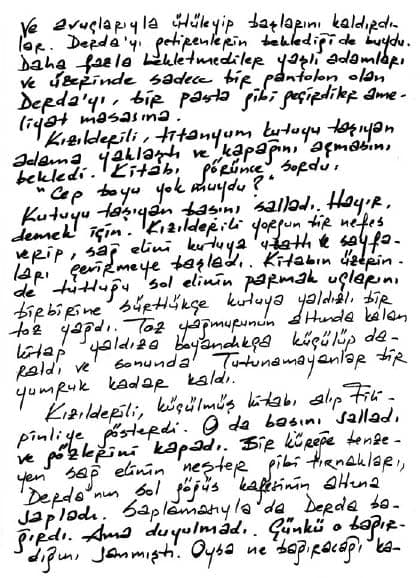 ve avuçlarıyla ütüleyip başlarını kaldırdı-
lar. Derda'yı getirenlerin beklediği de buydu.
Daha fazla bekletmediler yaşlı adamları
ve üzerinde sadece bir pantolon olan
Derda'yı, bir pasta gibi geçirdiler ame-
liyat masasına.
Kızılderili, titanyum kutuyu taşıyan
adama yaklaştı ve kapağını açmasını
bekledi. Kitabı görünce sordu,
"Cep boyu yok muydu?"
Kutuyu taşıyan başını salladı. Hayır,
demek için. Kızılderili yorgun bir nefes
verip, sağ elini kutuya uzattı ve sayfa-
ları çevirmeye başladı. Kitabın üzerin-
de tuttuğu sol elinin parmak uçlarını
birbirine sürttükçe kutuya yaldızlı bir
toz yağdı. Toz yağmurunun altında kalan
kitap yaldıza boyandıkça küçülüp da-
raldı ve sonunda Tutunamayanlar bir
yumruk kadar kaldı.
Kızılderili, küçülmüş kitabı alıp Fili-
pinliye gösterdi. O da başını salladı
ve gözlerini kapadı. Bir küreğe benze-
yen sağ elinin neşter gibi tırnakları,
Derda'nın sol göğüs kafesinin altına
sapladı. Saplamasıyla da Derda ba-
ğırdı. Ama duyulmadı. Çünkü o bağır-
dığını sanmıştı. Oysa ne bağıracağı ka-